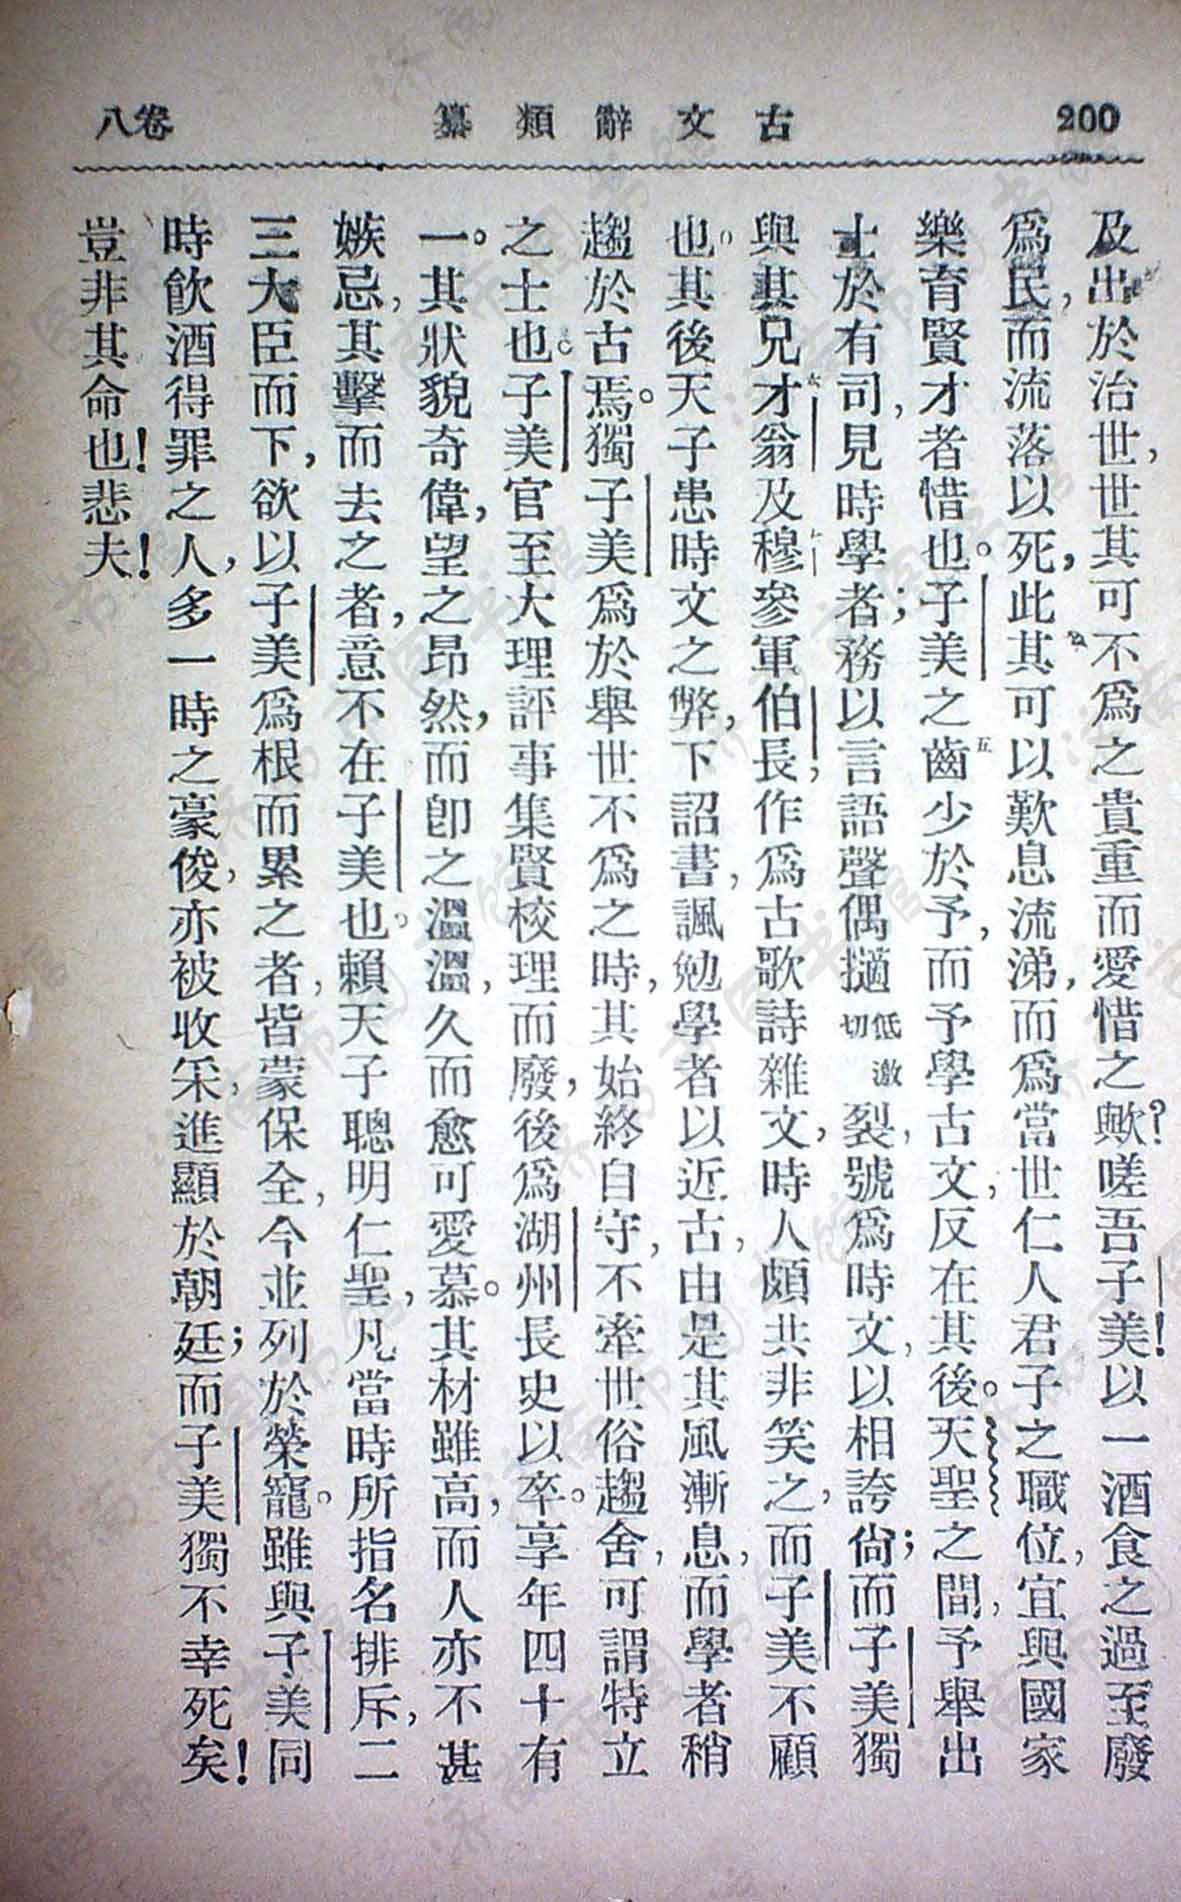 200
古文辭類纂
卷八
及出於治世，世其可不爲之貴重而愛惜之歟？嗟吾子美！以一酒食之過至廢
爲民，而流落以死，此其可以歎息流涕，而爲當世仁人君子之職位，宜與國家
樂育賢才者惜也。子美之齒少於予，而予學古文，反在其後。天聖之間，予舉出
士於有司，見時學者；務以言語聲偶擿低激切裂，號爲時文，以相誇尙；而子美獨
與其兄才翁及穆參軍伯長，作爲古歌詩雜文，時人頗共非笑之，而子美不顧
也。其後天子患時文之弊，下詔書，諷勉學者以近古，由是其風漸息，而學者稍
趨於古焉。獨子美爲於舉世不爲之時，其始終自守，不牽世俗趨舍，可謂特立
之士也。子美官至大理評事集賢校理而廢，後爲湖州長史以卒。享年四十有
一。其狀貌奇偉，望之昂然，而卽之溫溫，久而愈可愛慕。其材雖高，而人亦不甚
嫉忌，其擊而去之者，意不在子美也。賴天子聰明仁聖，凡當時所指名排斥，二
三大臣而下，欲以子美爲根而累之者，皆蒙保全，今並列於榮寵。雖與子美同
時飮酒得罪之人，多一時之豪俊，亦被收采，進顯於朝廷；而子美獨不幸死矣！
豈非其命也！悲夫！